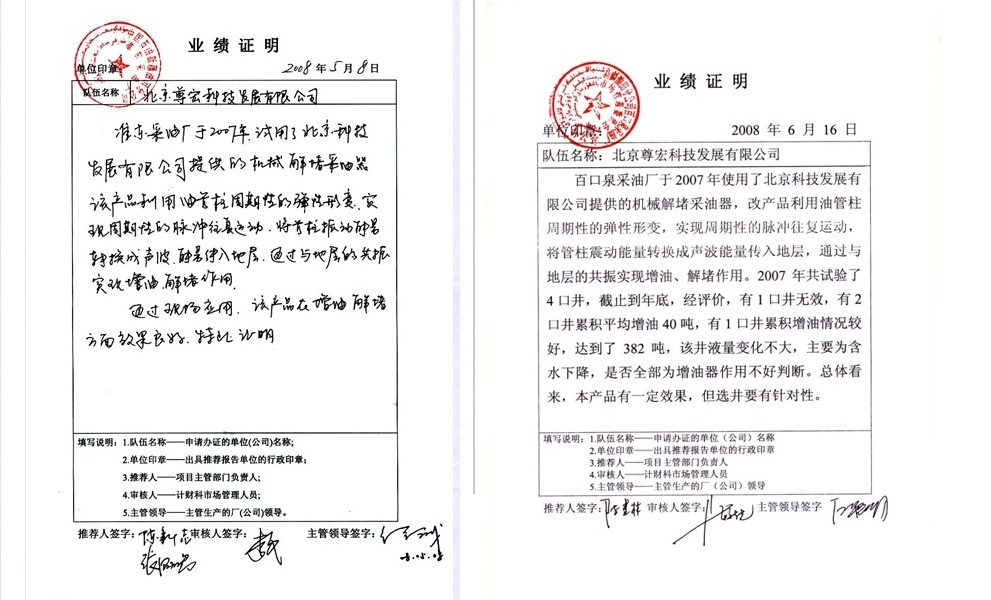 业绩证明
单位印章:
2008年5月8日
队伍名称
北京尊宏科技发展有限公司
准东采油厂于2007年试用了北京科技
发展有限公司提供的机械解堵采油器
该产品利用油管柱周期性的弹性形变、实
现周期性的脉冲往复运动、将管柱振动能量
转换成声波能量传入地层.通过与地层的共振
实现增油.解堵作用.
通过现场应用.该产品在增油解堵
方面效果良好.特此证明
填写说明: 1.队伍名称——申请办证的单位(公司)名称;
2.单位印章——出具推荐报告单位的行政印章;
3.推荐人——项目主管部门负责人;
4.审核人——计财科市场管理人员;
5.主管领导——主管生产的厂(公司)领导。
推荐人签字: 审核人签字: 主管领导签字:
业绩证明
单位印章:
2008 年 6 月 16 日
队伍名称: 北京尊宏科技发展有限公司
百口泉采油厂于 2007 年使用了北京科技发展有
限公司提供的机械解堵采油器，改产品利用油管柱
周期性的弹性形变，实现周期性的脉冲往复运动，
将管柱震动能量转换成声波能量传入地层，通过与
地层的共振实现增油、解堵作用。2007 年共试验了
4 口井，截止到年底，经评价，有 1 口井无效，有 2
口井累积平均增油 40 吨，有 1 口井累积增油情况较
好，达到了 382 吨，该井液量变化不大，主要为含
水下降，是否全部为增油器作用不好判断。总体看
来，本产品有一定效果，但选井要有针对性。
填写说明: 1.队伍名称——申请办证的单位（公司）名称
2.单位印章——出具推荐报告单位的行政印章
3.推荐人——项目主管部门负责人
4.审核人——计财科市场管理人员
5.主管领导——主管生产的厂（公司）领导
推荐人签字: 审核人签字: 主管领导签字